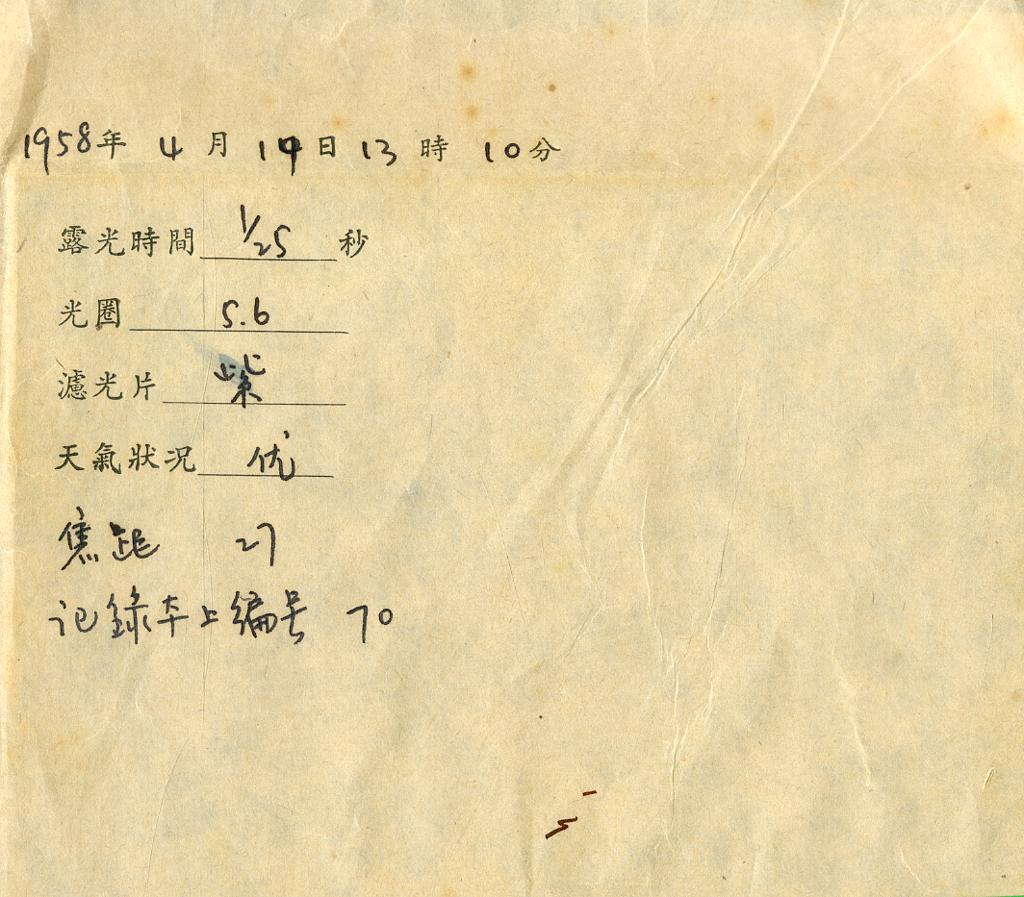 1958年 4月 19日 13時 10分
露光時間 1/25 秒
光圈 5.6
濾光片 紫
天氣狀况 优
焦距 27
记錄本上编号 70